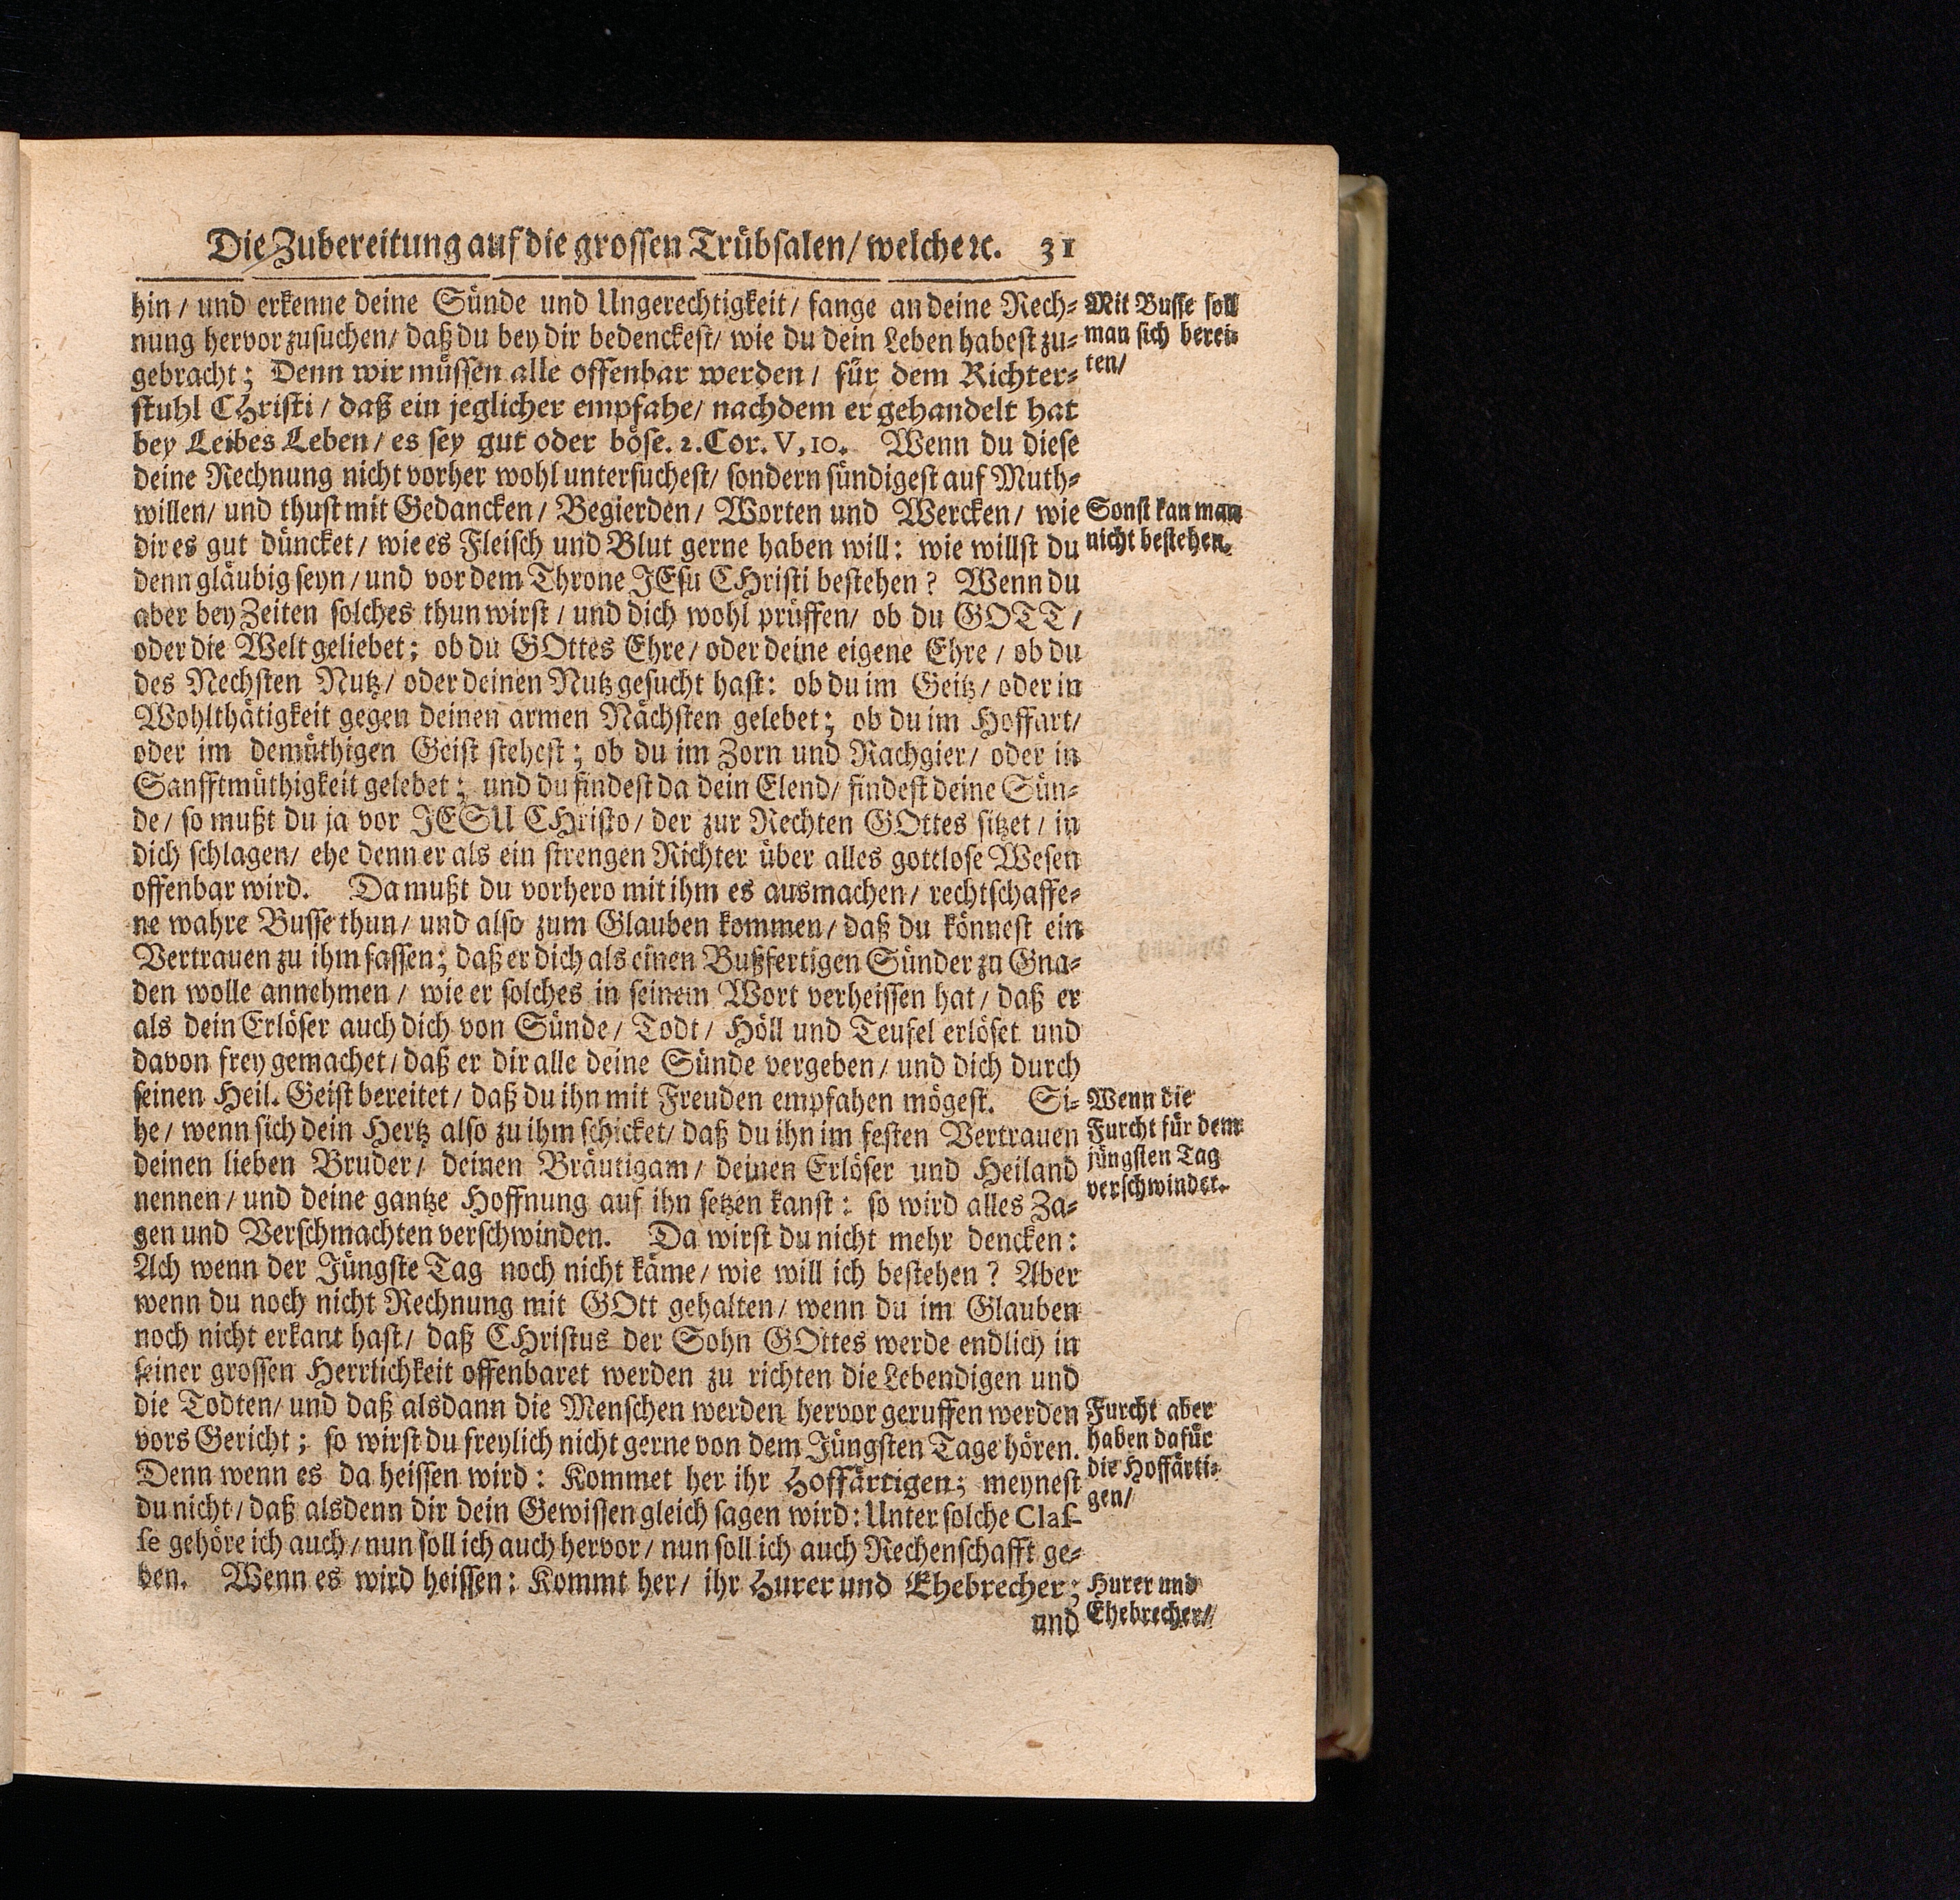 Die Zubereitung auf die grossen Trübsalen/ welche ꝛc. 31
hin/ und erkenne deine Sünde und Ungerechtigkeit/ fange an deine Rech-
nung hervor zusuchen/ daß du bey dir bedenckest/ wie du dein Leben habest zu-
gebracht; Denn wir müssen alle offenbar werden/ für dem Richter-
stuhl CHristi/ daß ein jeglicher empfahe/ nachdem er gehandelt hat
bey Leibes Leben/ es sey gut oder böse. 2. Cor. V, 10. Wenn du diese
deine Rechnung nicht vorher wohl untersuchest/ sondern sündigest auf Muth-
willen/ und thust mit Gedancken/ Begierden/ Worten und Wercken/ wie
dir es gut düncket/ wie es Fleisch und Blut gerne haben will: wie willst du
denn gläubig seyn/ und vor dem Throne JEsu CHristi bestehen? Wenn du
aber bey Zeiten solches thun wirst/ und dich wohl prüffen/ ob du GOTT/
oder die Welt geliebet; ob du GOttes Ehre/ oder deine eigene Ehre/ ob du
des Nechsten Nutz/ oder deinen Nutz gesucht hast: ob du im Geitz/ oder in
Wohlthätigkeit gegen deinen armen Nächsten gelebet; ob du im Hoffart/
oder im demüthigen Geist stehest; ob du im Zorn und Rachgier/ oder in
Sanfftmüthigkeit gelebet; und du findest da dein Elend/ findest deine Sün-
de/ so mußt du ja vor JESU CHristo/ der zur Rechten GOttes sitzet/ in
dich schlagen/ ehe denn er als ein strengen Richter über alles gottlose Wesen
offenbar wird. Da mußt du vorhero mit ihm es ausmachen/ rechtschaffe-
ne wahre Busse thun/ und also zum Glauben kommen/ daß du könnest ein
Vertrauen zu ihm fassen; daß er dich als einen Bußfertigen Sünder zu Gna-
den wolle annehmen/ wie er solches in seinem Wort verheissen hat/ daß er
als dein Erlöser auch dich von Sünde/ Todt/ Höll und Teufel erlöset und
davon frey gemachet/ daß er dir alle deine Sünde vergeben/ und dich durch
seinen Heil. Geist bereitet/ daß du ihn mit Freuden empfahen mögest. Si-
he/ wenn sich dein Hertz also zu ihm schicket/ daß du ihn im festen Vertrauen
deinen lieben Bruder/ deinen Bräutigam/ deinen Erlöser und Heiland
nennen/ und deine gantze Hoffnung auf ihn setzen kanst: so wird alles Za-
gen und Verschmachten verschwinden. Da wirst du nicht mehr dencken:
Ach wenn der Jüngste Tag noch nicht käme/ wie will ich bestehen? Aber
wenn du noch nicht Rechnung mit GOtt gehalten/ wenn du im Glauben
noch nicht erkant hast/ daß CHristus der Sohn GOttes werde endlich in
seiner grossen Herrlichkeit offenbaret werden zu richten die Lebendigen und
die Todten/ und daß alsdann die Menschen werden hervor geruffen werden
vors Gericht; so wirst du freylich nicht gerne von dem Jüngsten Tage hören.
Denn wenn es da heissen wird: Kommet her ihr Hoffärtigen; meynest
du nicht/ daß alsdenn dir dein Gewissen gleich sagen wird: Unter solche Clas-
se gehöre ich auch/ nun soll ich auch hervor/ nun soll ich auch Rechenschafft ge-
ben. Wenn es wird heissen: Kommt her/ ihr Hurer und Ehebrecher;
und
Mit Busse soll
man sich berei-
ten/
Sonst kan man
nicht bestehen.
Wenn die
Furcht für dem
jüngsten Tag
verschwindet.
Furcht aber
haben dafür
die Hoffärti-
gen/
Hurer und
Ehebrecher/